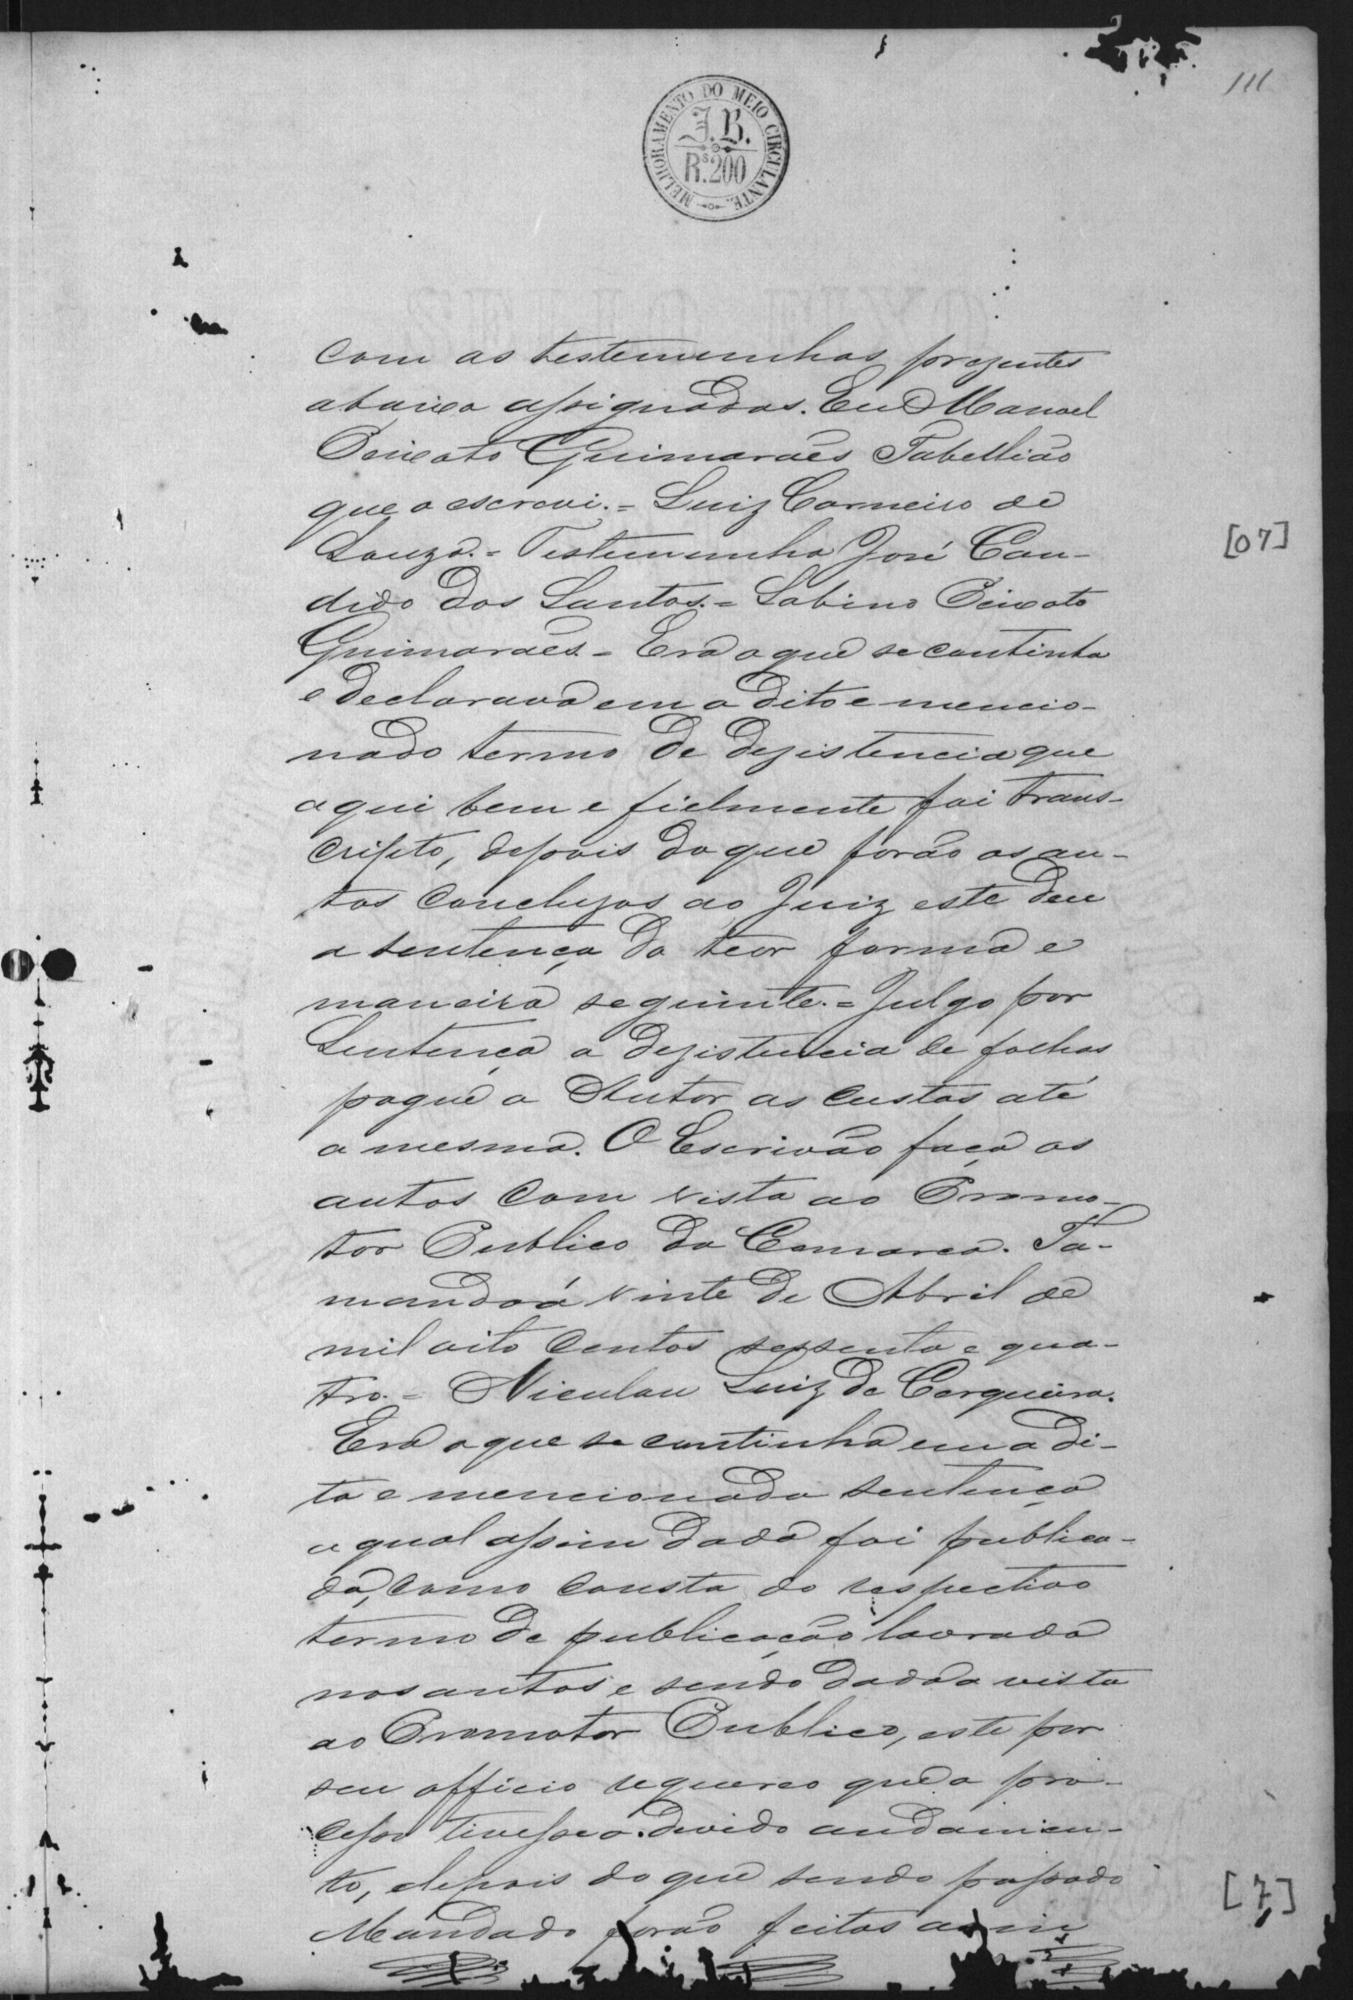 111
MELHORAMENTO DO MEIO CIRCULANTE.
J.B.
Rs200
com as testemunhas prezentes
abaixo assignadas. Eu Manoel
Peixoto Guimarães Tabellião
que o escrevi. = Luiz Carneiro de
Souza. = Testemunha José Can-
[07]
dido dos Santos. = Sabino Peixoto
Guimarães = Era o que se continha
e declarava em o dito e mencio-
nado termo de dezistencia que
aqui bem e fielmente foi trans-
cripto, depois do que forão os au-
tos concluzos ao Juiz este deu
a sentença do teor forma e
maneira seguinte. = Julgo por
Sentença a dezistencia de folhas
pague o Autor as custas até
a mesma. O Escrivão faça os
autos com vista ao Promo-
tor Publico da Comarca. Ta-
manduá vinte de Abril de
mil oito centos sessenta e qua-
tro. = Niculau Luiz de Cerqueira.
Era o que se continha em a di-
ta e mencionada sentença
a qual assim dada foi publica-
da, como consta do respectivo
termo de publicação lavrada
nos autos e sendo dada a vista
ao Promotor Publico, este por
seu officio requereo que o pro-
cesso tivesse o devido andamen-
to, depois do que sendo passado
[7]
Mandado forão feitas as in